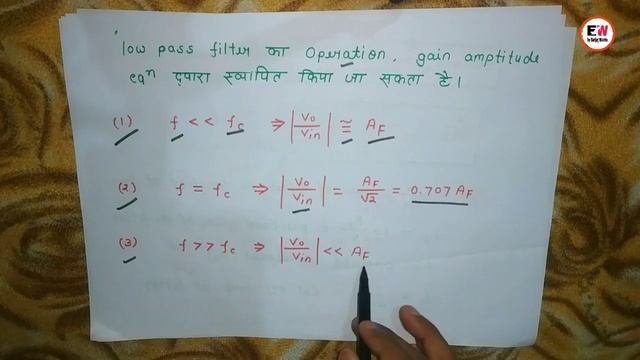 EW
low pass filter का operation, gain amptitude
eqⁿ द्वारा स्थापित किया जा सकता है।
(1) f << fc ⇒ |Vo/Vin| ≅ AF
(2) f = fc ⇒ |Vo/Vin| = AF/√2 = 0.707 AF
(3) f >> fc ⇒ |Vo/Vin| << AF